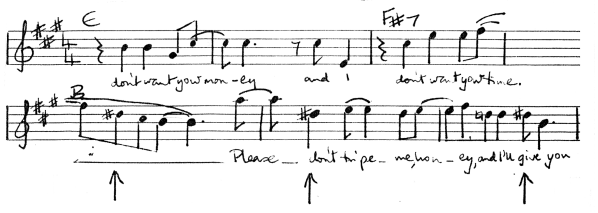 E F#7
4 4
don't want your mon-ey and I don't want your time.
B
Please— don't tri pe- me, hon-ey, and I'll give you